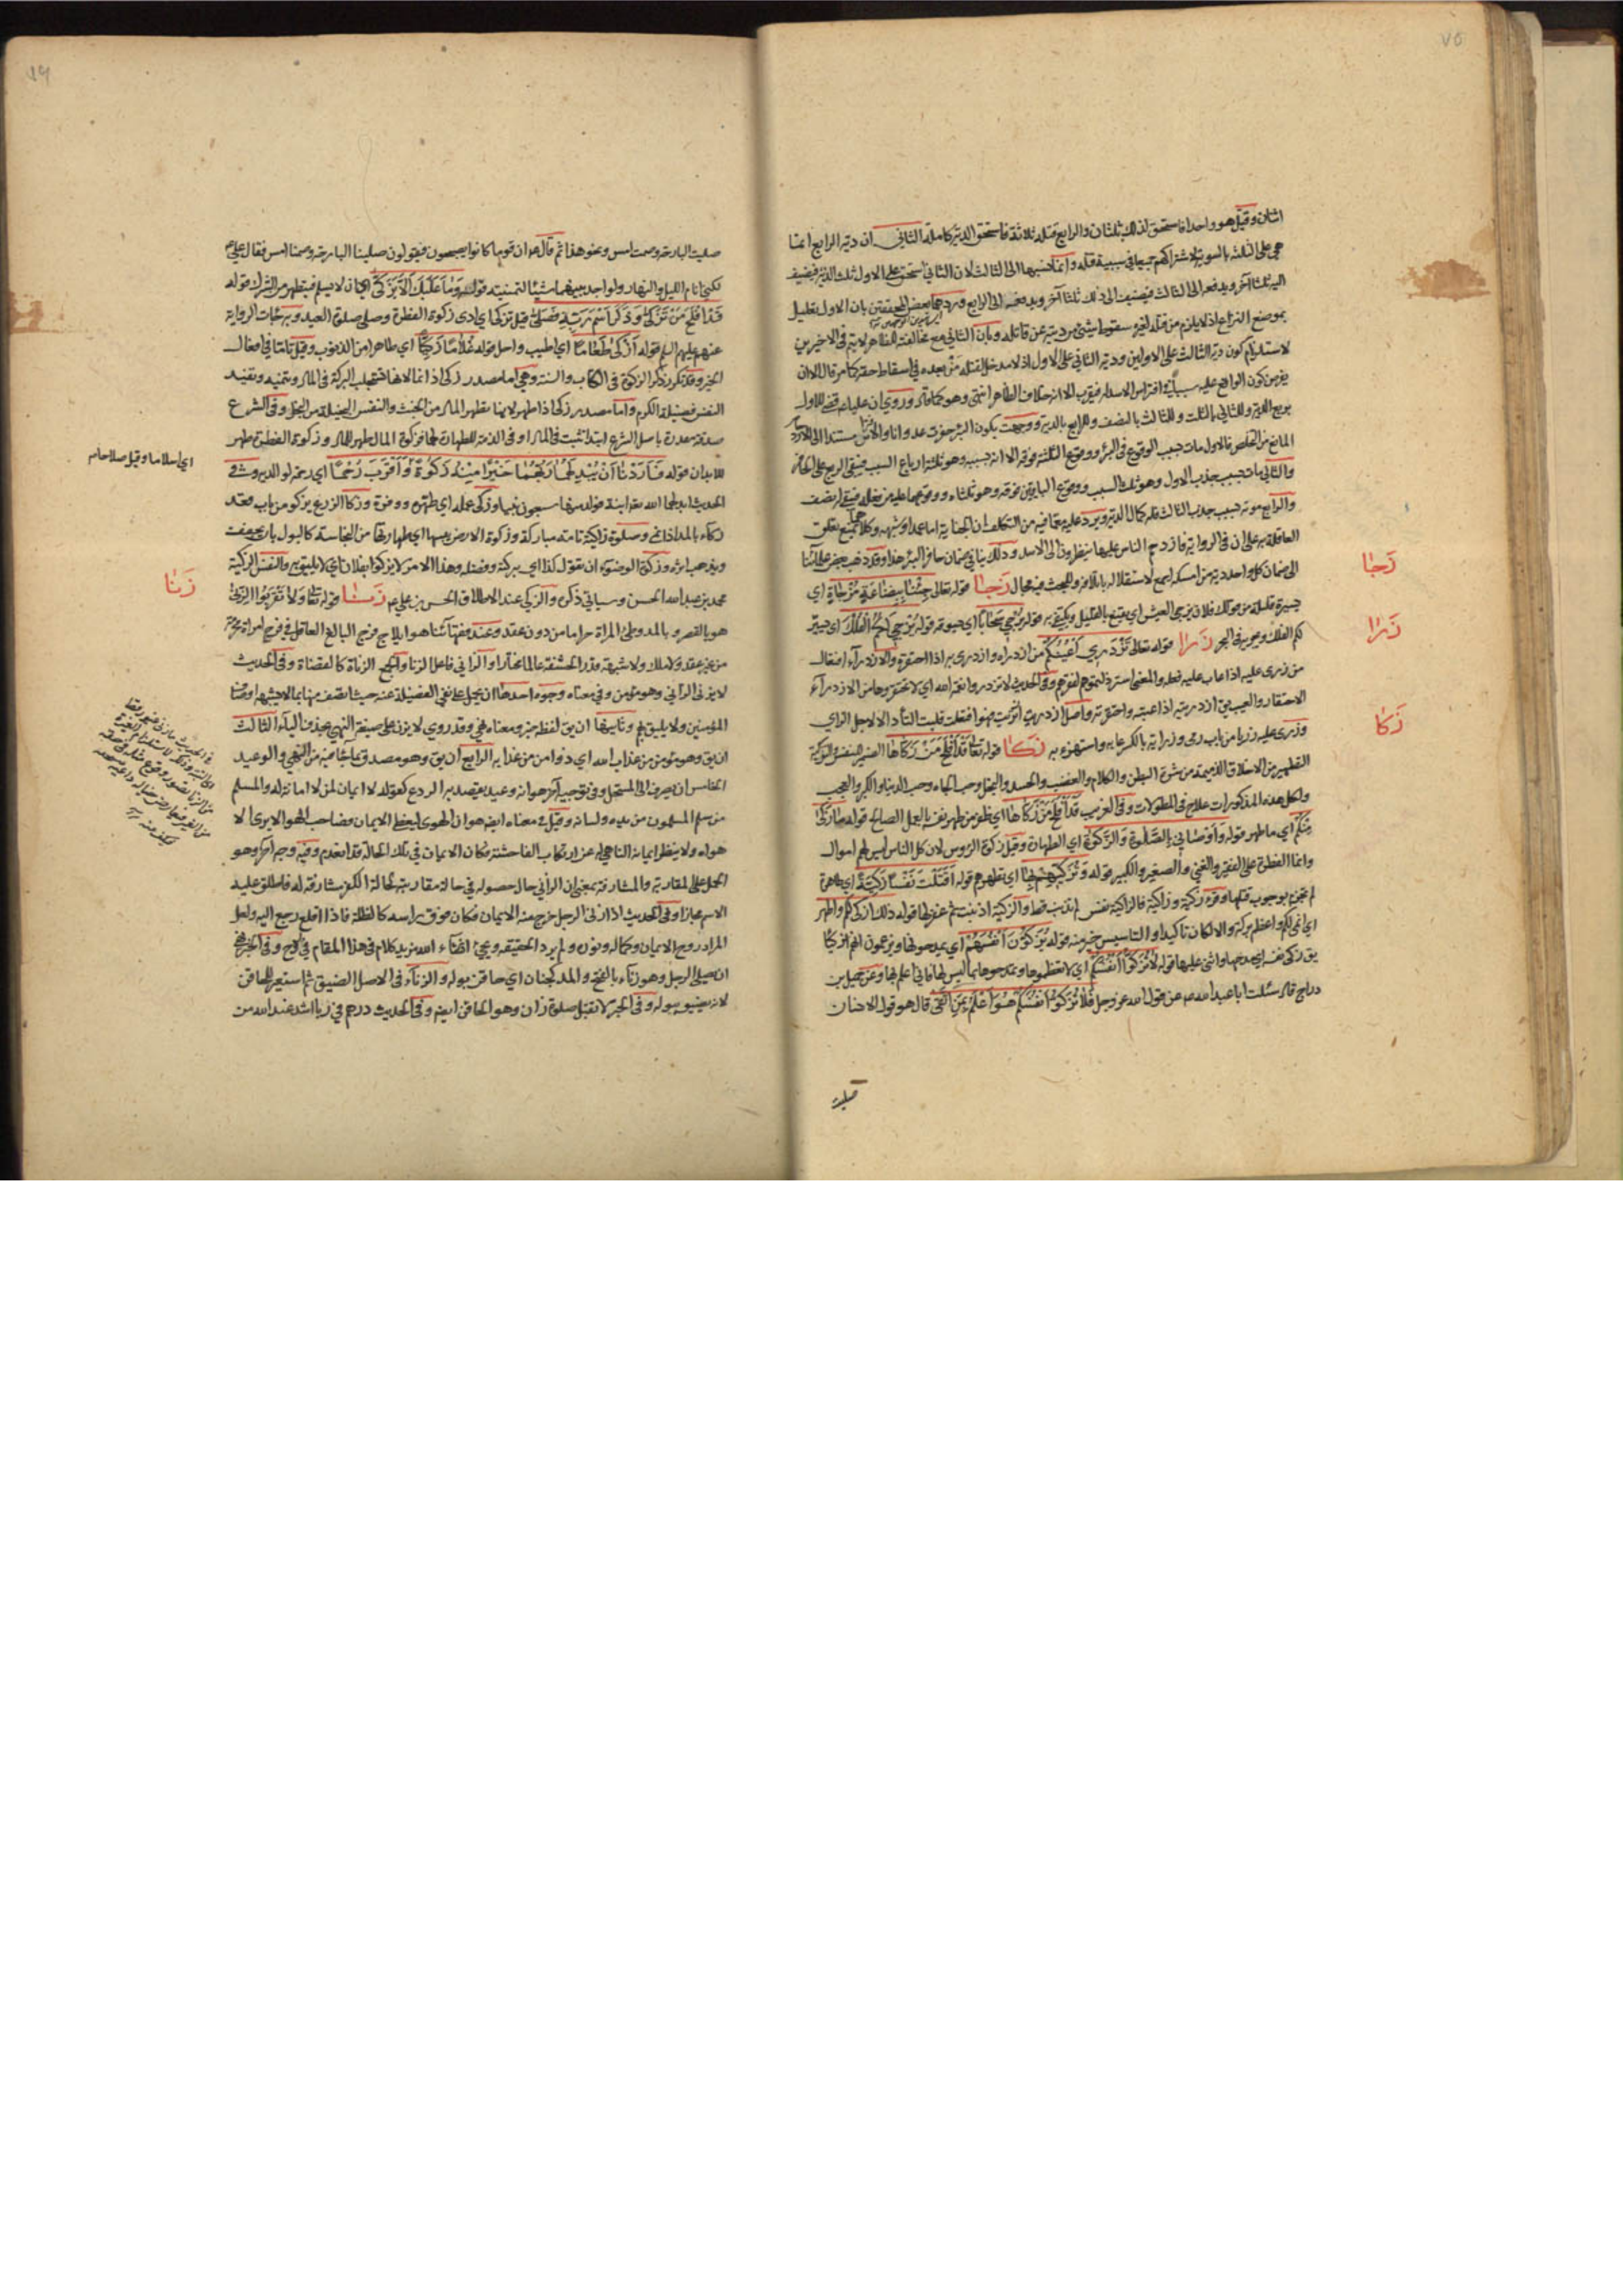 ٧٥
اثنان وقيل هو واحد فاستحق لذلك ثلثان والرابع قتله ثلاثة فاستحق الدية كاملة الثاني ان دية الرابع انما
هي على الثلثة بالسوية لاشتراكهم جميعا في سببية قتله وانما نسبها الى الثالث لان الثاني استحق على الاول ثلث الدية فيضيف
اليه ثلثا آخر ويدفعه الى الثالث فيضيف الى ذلك ثلثا آخر ويدفعه الى الرابع وردهما بعض المحققين بان الاول تعليل
بموضع النزاع اذ لا يلزم من قتله لغيره سقوط شيء من ديته عن قاتله وبان الثاني مع مخالفته للظاهر لا يتم في الاخيرين
لاستلزام كون دية الثالث على الاولين ودية الثاني على الاول اذ لا مدخل لقتله من بعده في اسقاط حقه كما مر قال الا ان
يفرض كون الواقع عليه سببا في افتراس الاسد له فيقرب الا انه خلاف الظاهر انتهى وهو كما قال وروي ان عليا قضى للاول
بربع الدية وللثاني بالثلث وللثالث بالنصف وللرابع بالدية ووجهت بكون البئر حفرت عدوانا والافتراس مستندا الى الازدحام
المانع من التخلص فالاول مات بسبب الوقوع في البئر ووقوع الثلثة فوقه الا انه بسببه وهو ثلثة ارباع السبب فيبقى الربع على الحافر
والثاني مات بسبب جذب الاول وهو ثلث السبب ووقوع الباقين فوقه وهو ثلثاه ووقوعهما عليه من فعله فيبقى له نصف
والرابع موته بسبب جذب الثالث فله كمال الدية ويرد عليه مع ما فيه من التكلف ان الجناية اما عمد او شبهه وكلاهما يمنع تعلق
العاقلة به على ان في الرواية فازدحم الناس عليها ينظرون الى الاسد وذلك ينافي ضمان حافر البئر هذا وقد ذهب بعض علمائنا
الى ضمان كل واحد دية من امسكه اجمع لاستقلاله باتلافه وللبحث فيه مجال زجا قوله تعالى جئنا ببضاعة مزجاة اي
يسيرة قليلة من قولك فلان يزجي العيش اي يقنع بالقليل ويكتفي به قوله يزجي سحابا اي يسوقه قوله يزجي لكم الفلك اي يسير
لكم الفلك ويجريه في البحر زرا قوله تعالى تزدري اعينكم من ازدراه وازدرى به اذا احتقره والازدراء افتعال
من زرى عليه اذا عاب عليه فعله والمعنى استرذلتموهم لفقرهم وفي الحديث لا تزدروا نعمة الله اي لا تحتقروها من الازدراء
الاحتقار والعيب يق ازدريته اذا عبته واحتقرته واصل ازدريت ازتريت فهو افتعلت قلبت التاء دالا لاجل الزاي
وزرى عليه زريا من باب رمى وزراية بالكسر عابه واستهزء به زكا قوله تعالى قد افلح من زكاها الضمير للنفس والتزكية
التطهير من الاخلاق الذميمة من شرة البطن والكلام والغضب والحسد والبخل وحب الجاه وحب الدنيا والكبر والعجب
ولكل هذه المذكورات علاج في المطولات وفي الغريب قد افلح من زكاها اي ظفر من طهر نفسه بالعمل الصالح قوله ما زكى
منكم اي ما طهر قوله واوصاني بالصلوة والزكوة اي الطهارة وقيل زكوة الرؤس لان كل الناس ليس لهم اموال
وانما الفطرة على الفقير والغني والصغير والكبير قوله وتزكيهم بها اي تطهرهم قوله اقتلت نفسا زكية اي طاهرة
لم تجن ما يوجب قتلها وقرء زكية وزاكية فالزاكية نفس لم تذنب قط والزكية اذنبت ثم غفر لها قوله ذلك ازكى لكم واطهر
اي انمى لكم واعظم بركة والا لكان تاكيدا والتاسيس خير منه قوله يزكون انفسهم اي يمدحونها ويزعمون انهم ازكيا
يق زكى نفسه اي مدحها واثنى عليها قوله لا تزكوا انفسكم اي لا تعظموها وتمدحوها بما ليس لها فاني اعلم بها وعن جميل بن
دراج قال سئلت ابا عبد الله عن قول الله عز وجل فلا تزكوا انفسكم هو اعلم بمن اتقى قال هو قول الانسان
صليت
زجا
زرا
زكا
صليت البارحة وصمت امس ونحو هذا ثم قال ان قوما كانوا يصبحون فيقولون صلينا البارحة وصمنا امس فقال علي
لكني انام الليل والنهار ولو اجد بينهما شيئا لنمته قوله وما عليك الا يزكى اي ان لا يسلم فيتطهر من الشرك قوله
قد افلح من تزكى وذكر اسم ربه فصلى قيل تزكى اي ادى زكوة الفطرة وصلى صلوة العيد وبه جاءت الرواية
عنهم عليهم السلم قوله ازكى طعاما اي اطيب واحل قوله غلاما زكيا اي طاهرا من الذنوب وقيل ناميا في افعال
الخير وقد تكرر ذكر الزكوة في الكتاب والسنة وهي اما مصدر زكى اذا نما لانها تستجلب البركة في المال وتنميه وتفيد
النفس فضيلة الكرم واما مصدر زكى اذا طهر لانها تطهر المال من الخبث والنفس البخيلة من البخل وفي الشرع
صدقة مقدرة باصل الشرع ابتداء تثبت في المال او في الذمة للطهارة لهما فزكوة المال طهر للمال وزكوة الفطرة طهر
للابدان قوله فاردنا ان يبدلهما ربهما خيرا منه زكوة واقرب رحما اي رحمة لوالديه وفي
الحديث ابدلهما الله به ابنة فولد منها سبعون نبيا وزكى عمله اي طهره ووفوره وزكا الزرع يزكو من باب قعد
زكاء بالمد اذا نمى وصلوة زاكية تامة مباركة وزكوة الارض يبسها اي طهارتها من النجاسة كالبول بان يجف
ويذهب اثره وزكوة الوضوء ان تقول كذا اي بركته وفضله وهذا الامر لا يزكو بفلان اي لا يليق به والنفس الزكية
محمد بن عبد الله الحسن وسياتي ذكره والزكي عند الاطلاق الحسن بن علي زنا قوله تعالى ولا تقربوا الزنى
هو بالقصر وبالمد وطئ المراة حراما من دون عقد وعند فقهائنا هو ايلاج فرج البالغ العاقل في فرج امراة محرمة
من غير عقد ولا ملك ولا شبهة قدر الحشفة عالما مختارا والزاني فاعل الزنا والجمع الزناة كالقضاة وفي الحديث
لا يزني الزاني وهو مؤمن وفي معناه وجوه احدها ان يحمل على نفي الفضيلة عنه حيث اتصف منها بما لا يشبه اوصاف
المؤمنين ولا يليق بهم وثانيها ان يق لفظه خبر ومعناه نهي وقد روي لا يزن على صيغة النهي بحذف الياء الثالث
ان يق وهو مؤمن من عذاب الله اي ذو امن من عذابه الرابع ان يق وهو مصدق بما جاء فيه من النهي والوعيد
الخامس ان يصرف الى المستحل وفي توجيه آخر هو انه وعيد يقصد به الردع كقوله لا ايمان لمن لا امانة له والمسلم
من سلم المسلمون من يده ولسانه وقيل في معناه ايضا هو ان الهوى ليغطي الايمان فصاحب الهوى لا يرى الا
هواه ولا ينظر ايمانه الناهي له عن ارتكاب الفاحشة فكان الايمان في تلك الحالة قد انعدم وفيه وجه آخر وهو
الحمل على المقاربة والمشارفة بمعنى ان الزاني حال حصوله في حالة مقاربة لحالة الكفر مشارفة له فاطلق عليه
الاسم مجازا وفي الحديث اذا زنى الرجل خرج منه الايمان فكان فوق راسه كالظلة فاذا اقلع رجع اليه ولعل
المراد روح الايمان وكماله ونوره ولم يرد الحقيقة ويجئ انشاء الله مزيد كلام في هذا المقام في روح وفي الخبر نهى
ان يصلي الرجل وهو زناء بالفتح والمد كجبان اي حاقن بوله والزناء في الاصل الضيق ثم استعير للحاقن
لانه يضيق ببوله وفي الخبر لا تقبل صلوة زان وهو الحاقن ايضا وفي الحديث درهم في ربا اشد عند الله من
اي اسلاما وقيل صلاحا
زنا